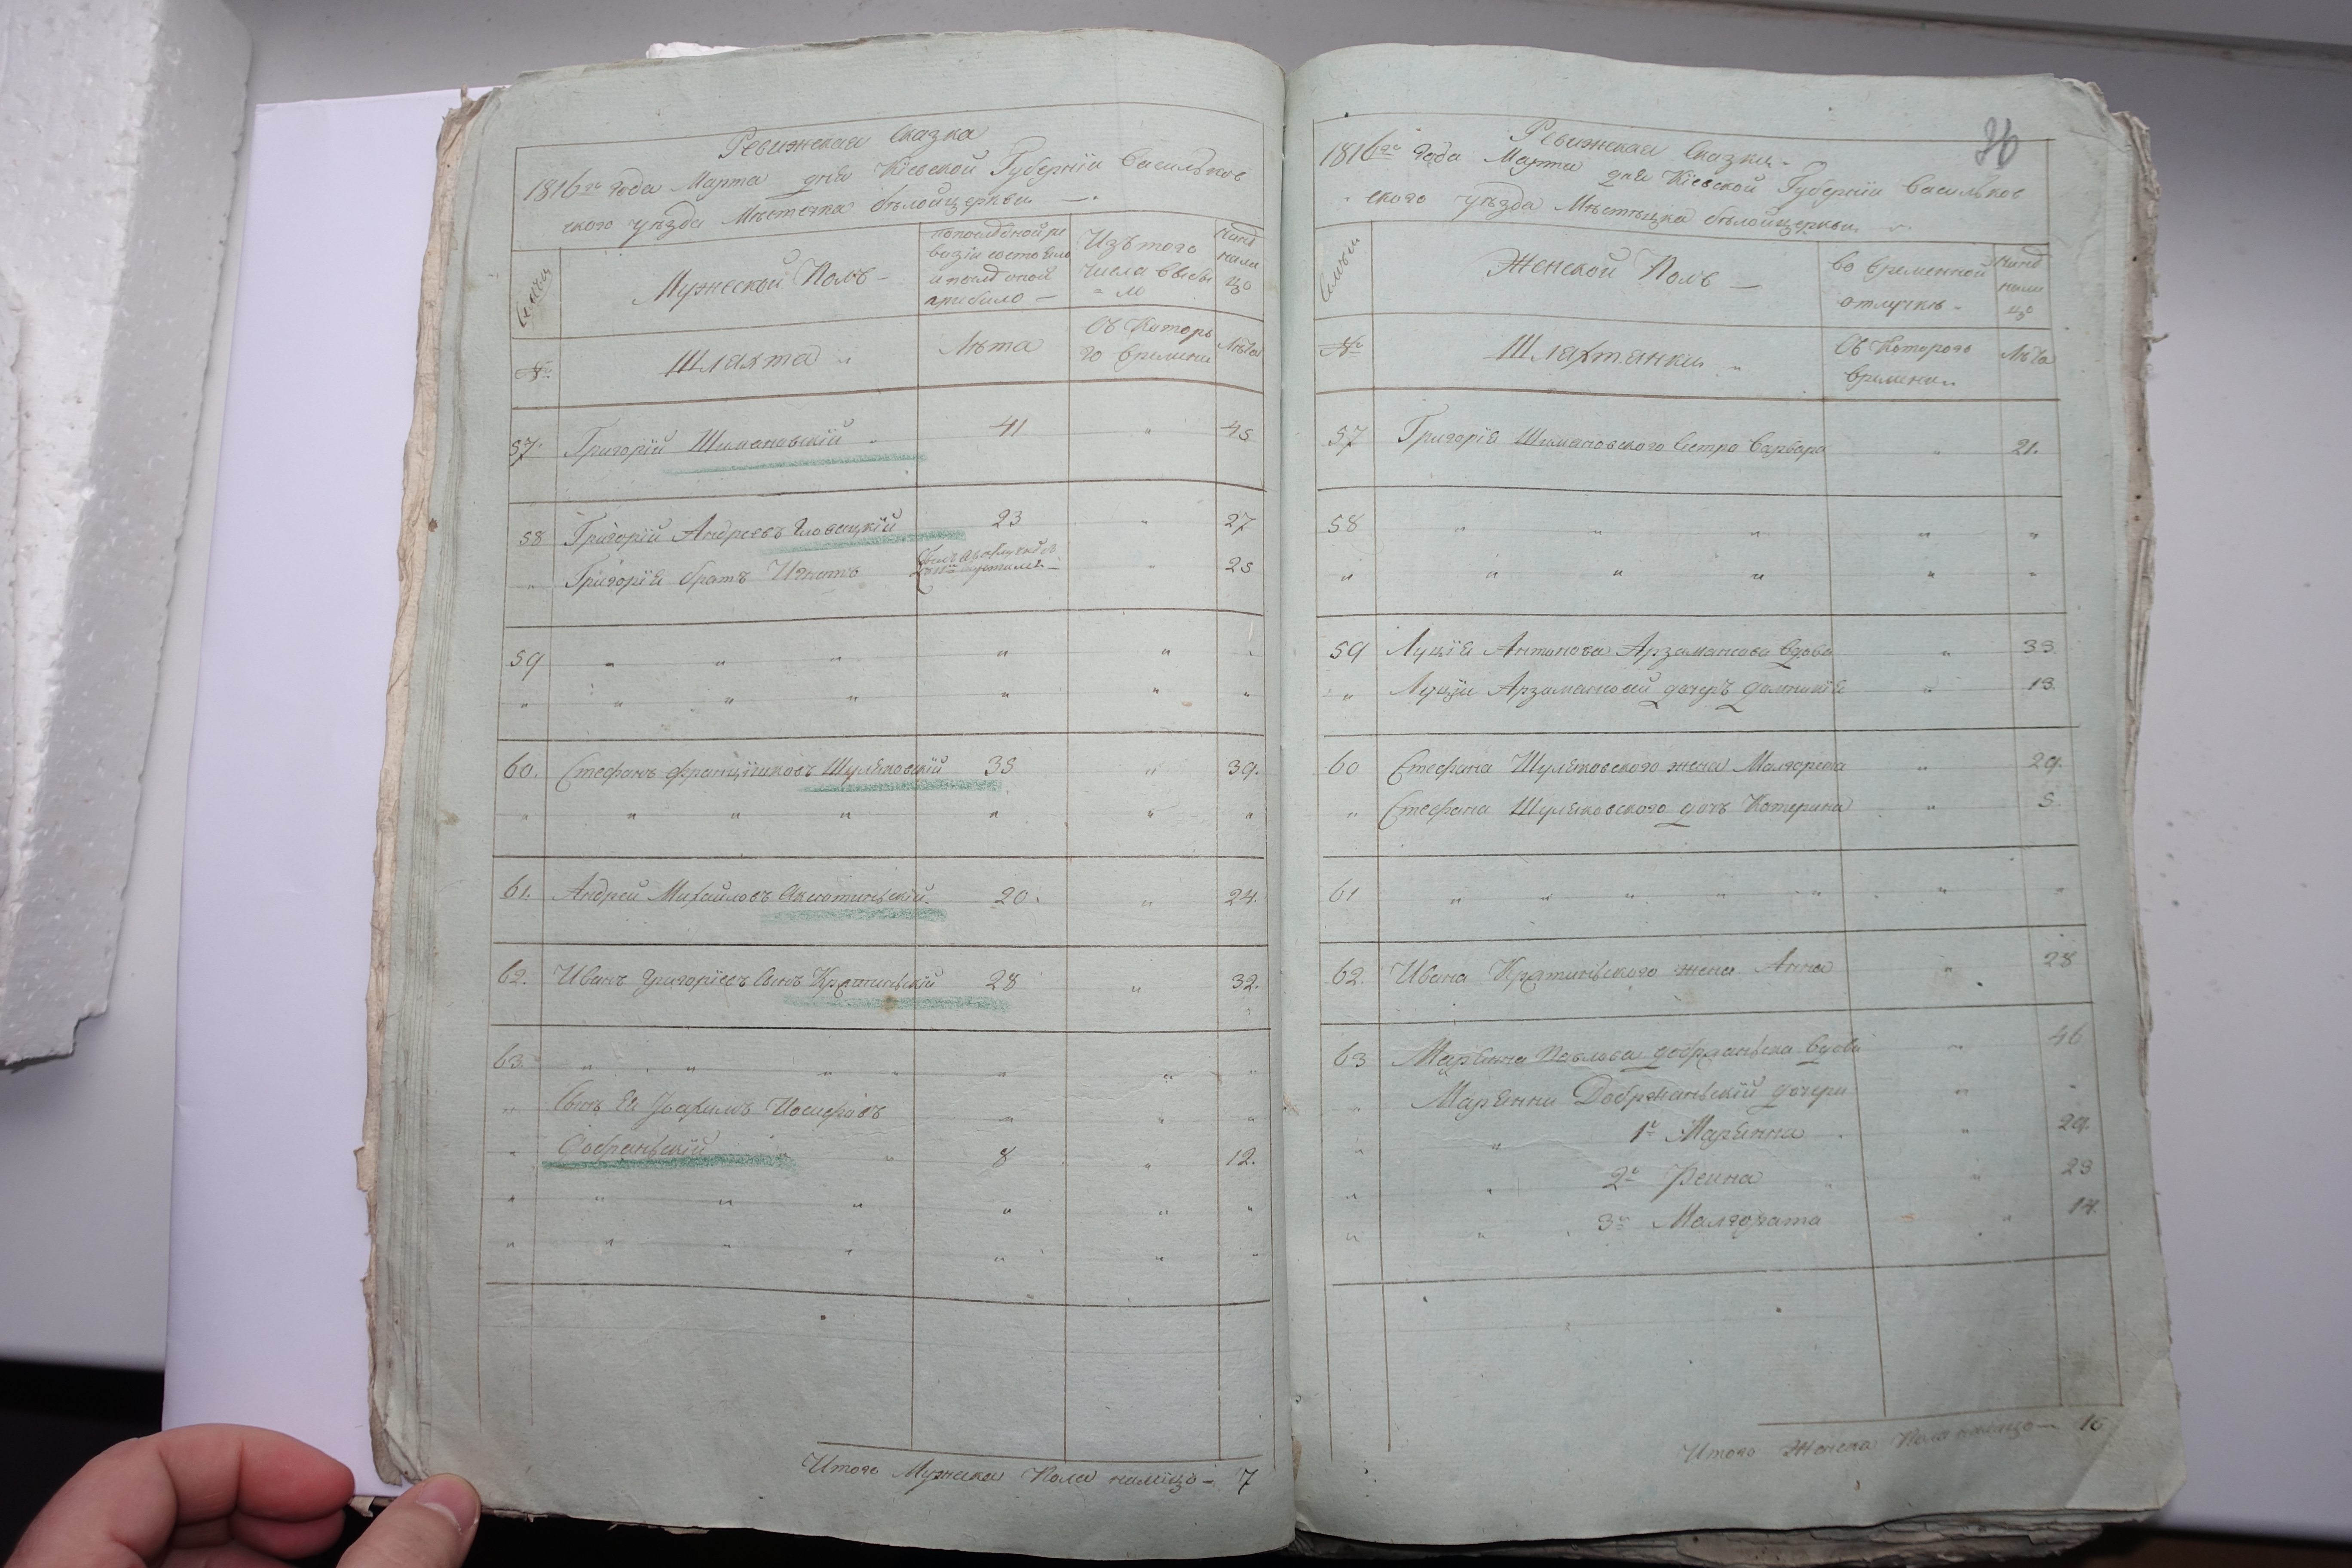 Ревижская Сказка
1816го года Марта дня Кіевской Губерніи Васильков
ского уѣзда Мѣстечка бѣлойцеркви
Семьи
Мужеской Полъ
попоследной ре
визіи состояло
и после оной
прибило
Изътого
числа выбы
ло
ныне
нали
цо
№
Шляхта
Лѣта
Съ Котора
го времени
Лѣта
57. Григорій Шимановскій 41 " 45
58 Григорій Андреевъ Гловацкій 23 " 27
" Григорія братъ Игнатъ " 25
59 " " " " " "
" " " " " " "
60. Стефанъ Францишковъ Шуляковскій 35 " 39.
" " " " " " "
61. Андрей Михайловъ 20. " 24.
62. Иванъ Григоріевъ Сынъ 28 " 32.
63 " " " " " " "
" Сынъ Ея Іоахимъ Иосифовъ " " "
" Добраньскій " 8 " 12.
" " " " " " "
" " " " " " "
Итого Мужска Пола налицо 7
36
Ревижская Сказка
1816го года Марта дня Кіевской Губерніи Васильков
ского уѣзда Мѣстечка бѣлойцеркви
Семьи
Женской Полъ
во временной
отлучкѣ
ныне
нали
цо
№
Шляхтянки
Съ Котораго
времени
Лѣта
57 Григорія Шимановского Сестра Варвара " 21.
58 " " " " "
" " " " " "
59 Луція Антонова Арзаманова вдова " 33.
" Луціи Арзамановой дочеръ Домникія " 13.
60 Стефана Шуляковского жена Малгорета " 29.
" Стефана Шуляковского дочъ Катерина " 5
61 " " " " " " "
62. Ивана жена Анна " 28
63 Маріянна Павлова вдова " 46
" Маріянни Добржаньскій дочери " "
" " 1я Маріянна " 29.
" " 2я Реина " " 23
" " 3я Малгората " 14.
Итого Женска Пола налицо